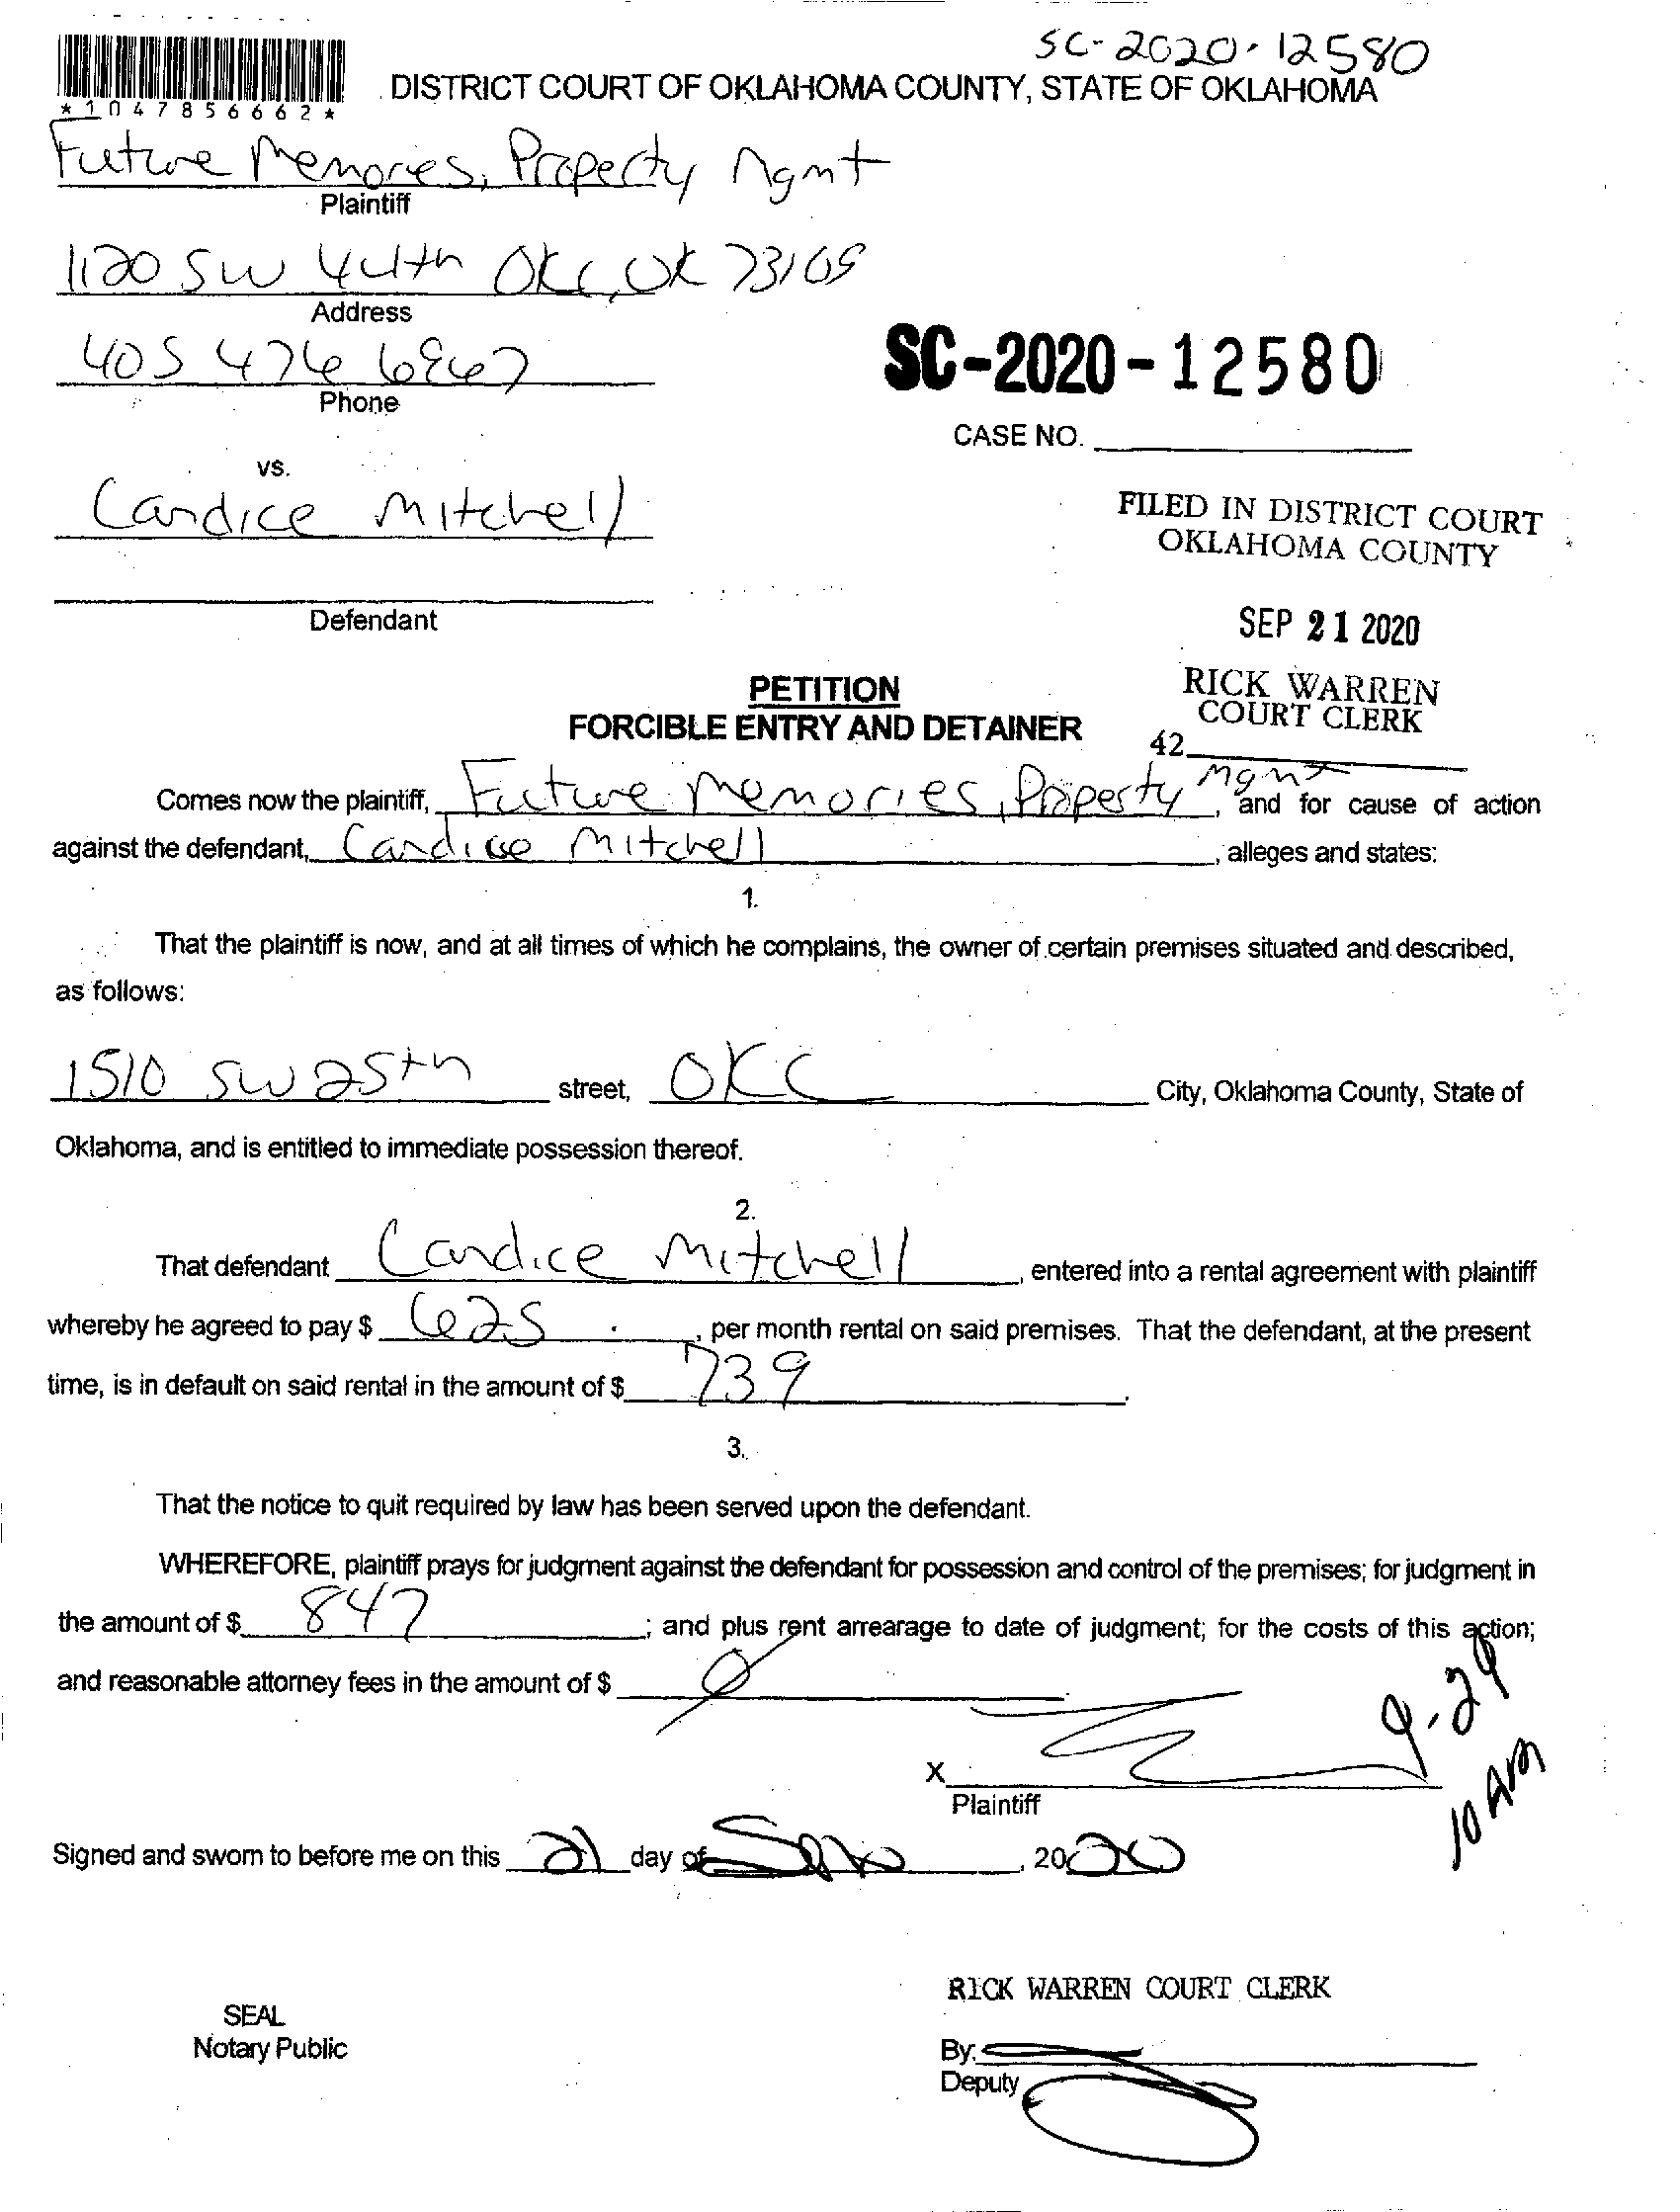 SC-2020-12580
*1047856662*
DISTRICT COURT OF OKLAHOMA COUNTY, STATE OF OKLAHOMA
Future Memories, Property Mgmt
Plaintiff
1120 SW 44th OKC, OK 73109
Address
405 476 6967
Phone
SC-2020-12580
CASE NO.
vs.
Candice Mitchell
FILED IN DISTRICT COURT
OKLAHOMA COUNTY
Defendant
SEP 21 2020
PETITION
FORCIBLE ENTRY AND DETAINER
RICK WARREN
COURT CLERK
42
Comes now the plaintiff, Future Memories, Property Mgmt, and for cause of action
against the defendant, Candice Mitchell, alleges and states:
1.
That the plaintiff is now, and at all times of which he complains, the owner of certain premises situated and described,
as follows:
1510 SW 25th street, OKC City, Oklahoma County, State of
Oklahoma, and is entitled to immediate possession thereof.
2.
That defendant Candice Mitchell, entered into a rental agreement with plaintiff
whereby he agreed to pay $ 625, per month rental on said premises. That the defendant, at the present
time, is in default on said rental in the amount of $ 739.
3.
That the notice to quit required by law has been served upon the defendant.
WHEREFORE, plaintiff prays for judgment against the defendant for possession and control of the premises; for judgment in
the amount of $ 847; and plus rent arrearage to date of judgment; for the costs of this action;
and reasonable attorney fees in the amount of $ Ø
9.29
10 AM
X
Plaintiff
Signed and sworn to before me on this 21 day of, 2020
RICK WARREN COURT CLERK
SEAL
Notary Public
By:
Deputy